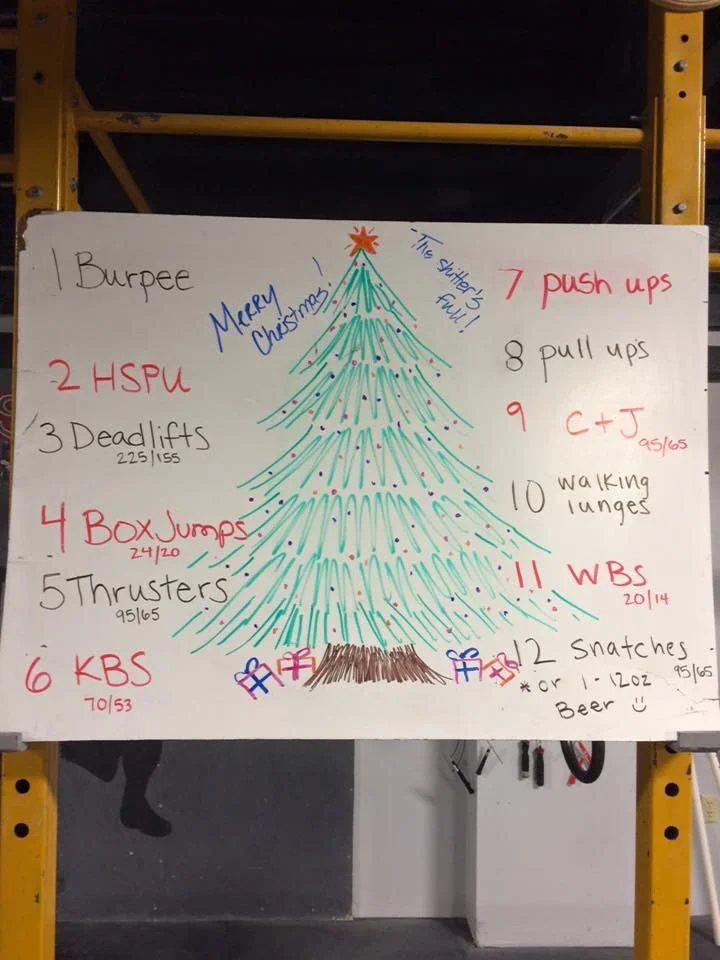 1 Burpee
2 HSPU
3 Deadlifts
225/155
4 Box Jumps
24/20
5 Thrusters
95/65
6 KBS
70/53
Merry
Christmas!
-The shitter's
full!
7 push ups
8 pull ups
9 C+J
95/65
10 walking
lunges
11 WBS
20/14
12 Snatches
95/65
*or 1-12oz
Beer